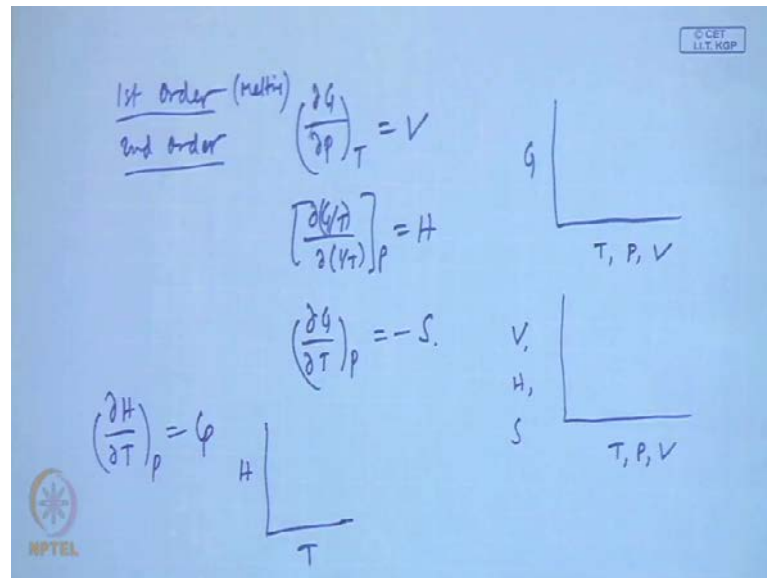 © CET
I.I.T. KGP
1st order (melting)
2nd order
(∂G/∂P)_T = V
[∂(G/T)/∂(1/T)]_P = H
(∂G/∂T)_P = -S.
G
T, P, V
V,
H,
S
T, P, V
(∂H/∂T)_P = Cp
H
T
NPTEL